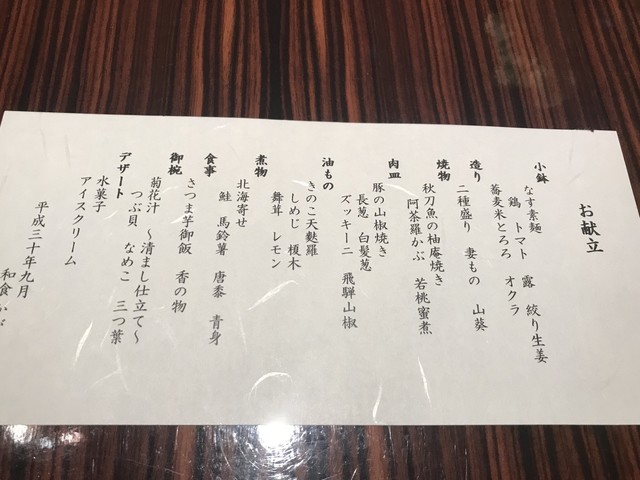 お献立
小鉢
なす素麺 露 絞り生姜
鶏 トマト オクラ
蕎麦米とろろ
造り
二種盛り 妻もの 山葵
焼物
秋刀魚の柚庵焼き
阿茶羅かぶ 若桃蜜煮
肉皿
豚の山椒焼き
長葱 白髪葱
ズッキーニ 飛騨山椒
油もの
きのこ天麩羅
しめじ 榎木
舞茸 レモン
煮物
北海寄せ
鮭 馬鈴薯 唐黍 青身
食事
さつま芋御飯 香の物
御椀
菊花汁 〜清まし仕立て〜
つぶ貝 なめこ 三つ葉
デザート
水菓子
アイスクリーム
平成三十年九月
和食